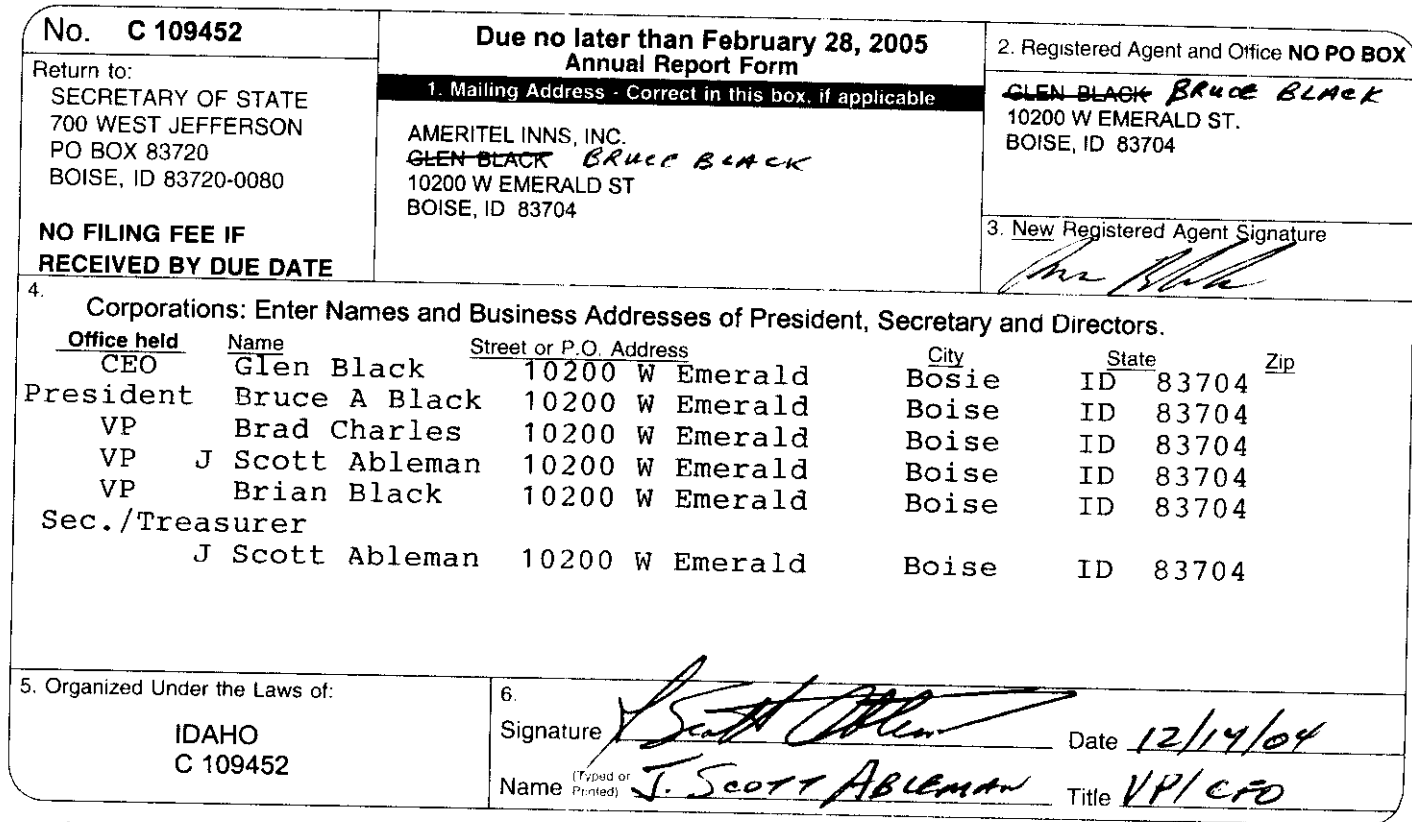 No. C 109452
Return to:
SECRETARY OF STATE
700 WEST JEFFERSON
PO BOX 83720
BOISE, ID 83720-0080
NO FILING FEE IF
RECEIVED BY DUE DATE
Due no later than February 28, 2005
Annual Report Form
1. Mailing Address - Correct in this box, if applicable
AMERITEL INNS, INC.
GLEN BLACK BRUCE BLACK
10200 W EMERALD ST
BOISE, ID 83704
2. Registered Agent and Office NO PO BOX
GLEN BLACK BRUCE BLACK
10200 W EMERALD ST.
BOISE, ID 83704
3. New Registered Agent Signature
4.
Corporations: Enter Names and Business Addresses of President, Secretary and Directors.
Office held Name Street or P.O. Address City State Zip
CEO Glen Black 10200 W Emerald Bosie ID 83704
President Bruce A Black 10200 W Emerald Boise ID 83704
VP Brad Charles 10200 W Emerald Boise ID 83704
VP J Scott Ableman 10200 W Emerald Boise ID 83704
VP Brian Black 10200 W Emerald Boise ID 83704
Sec./Treasurer
J Scott Ableman 10200 W Emerald Boise ID 83704
5. Organized Under the Laws of:
IDAHO
C 109452
6.
Signature J Scott Ableman Date 12/14/04
Name (Typed or Printed) J. SCOTT ABLEMAN Title VP/CFO